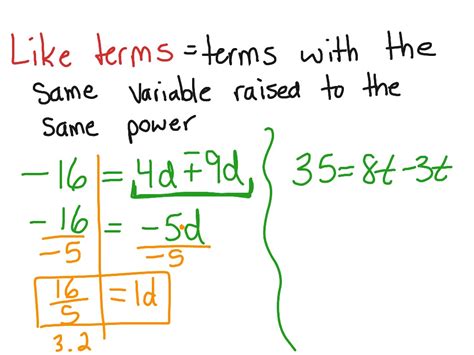 Like terms = terms with the
same variable raised to the
same power
-16 = 4d + -9d
-16 = -5·d
-5 -5
16/5 = 1d
3.2
35 = 8t - 3t